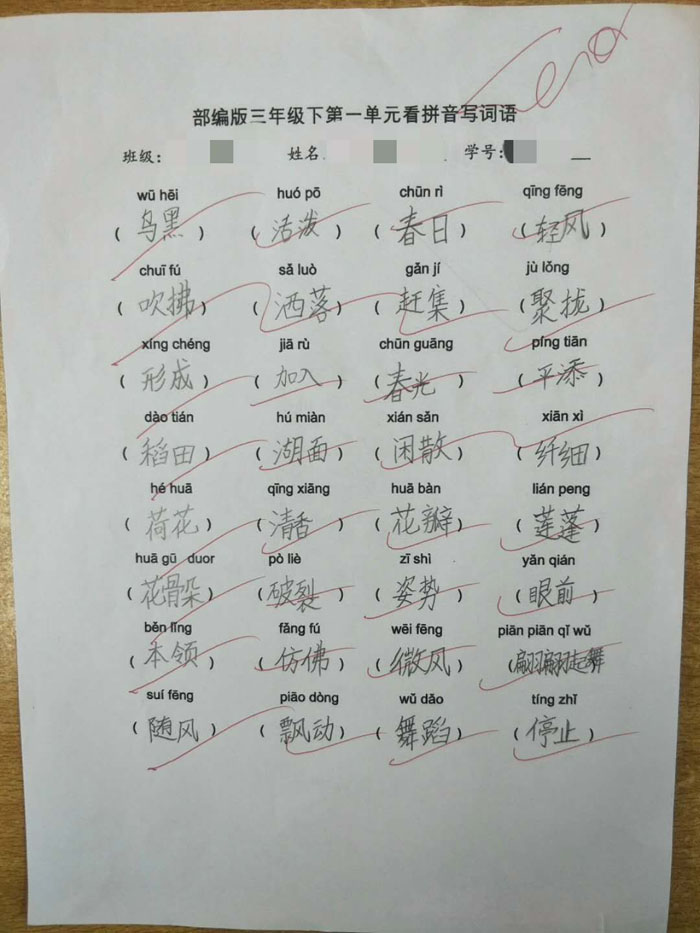 部编版三年级下第一单元看拼音写词语
班级: 姓名 学号:
wū hēi huó pō chūn rì qīng fēng
(乌黑) (活泼) (春日) (轻风)
chuī fú sǎ luò gǎn jí jù lǒng
(吹拂) (洒落) (赶集) (聚拢)
xíng chéng jiā rù chūn guāng píng tiān
(形成) (加入) (春光) (平添)
dào tián hú miàn xián sǎn xiān xì
(稻田) (湖面) (闲散) (纤细)
hé huā qīng xiāng huā bàn lián peng
(荷花) (清香) (花瓣) (莲蓬)
huā gū duor pò liè zī shì yǎn qián
(花骨朵) (破裂) (姿势) (眼前)
běn lǐng fǎng fú wēi fēng piān piān qǐ wǔ
(本领) (仿佛) (微风) (翩翩起舞)
suí fēng piāo dòng wǔ dǎo tíng zhǐ
(随风) (飘动) (舞蹈) (停止)